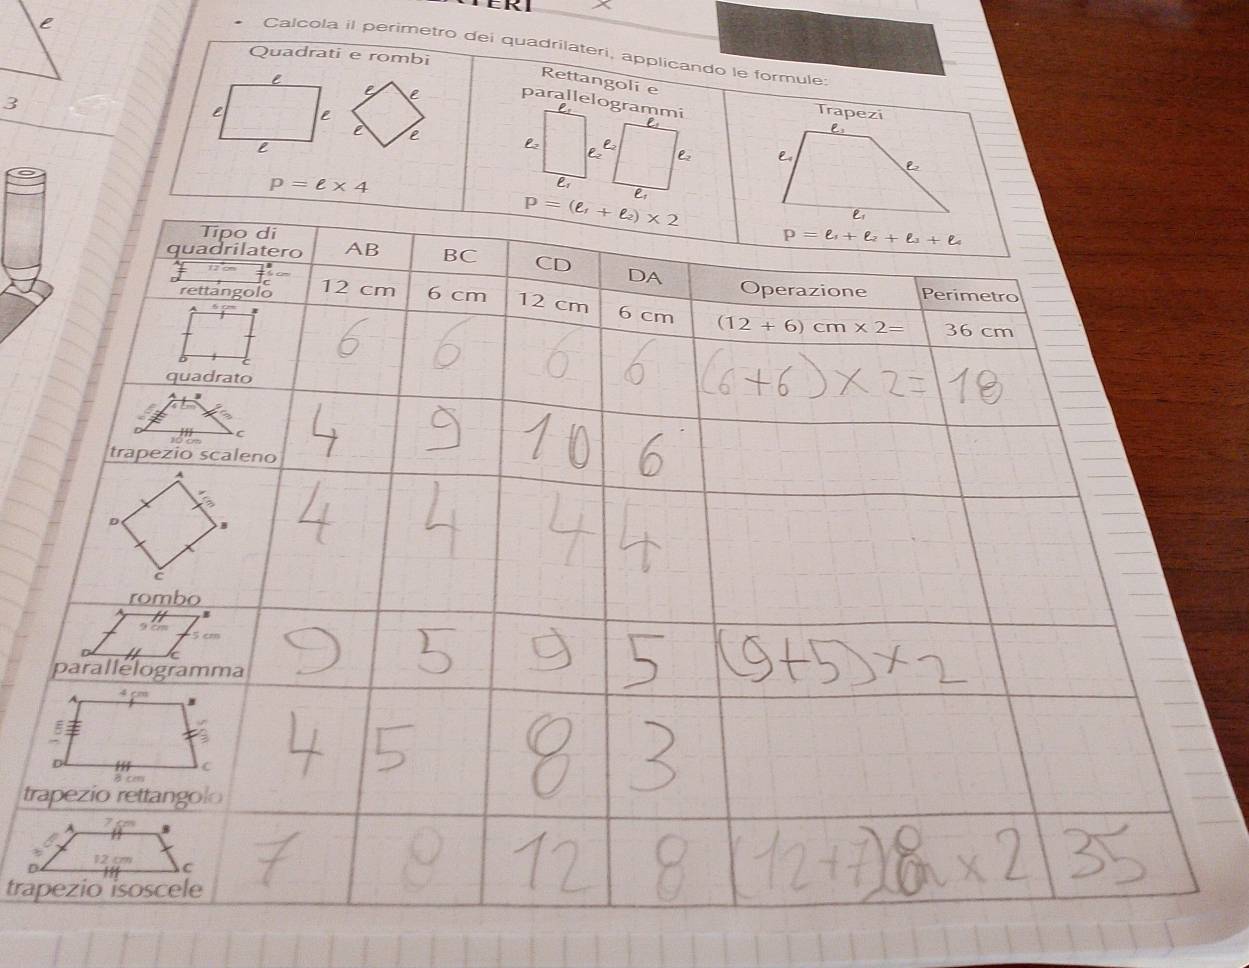 ℓ
3
• Calcola il perimetro dei quadrilateri, applicando le formule:
Quadrati e rombi
ℓ
ℓ ℓ
ℓ
ℓ ℓ
ℓ ℓ
P = ℓ × 4
Rettangoli e
parallelogrammi
ℓ₁ ℓ₁
ℓ₂ ℓ₂ ℓ₂ ℓ₂
ℓ₁ ℓ₁
P = (ℓ₁ + ℓ₂) × 2
Trapezi
ℓ₃
ℓ₄ ℓ₂
ℓ₁
P = ℓ₁ + ℓ₂ + ℓ₃ + ℓ₄
Tipo di
quadrilatero AB BC CD DA Operazione Perimetro
A B
12 cm 6 cm
D C
rettangolo 12 cm 6 cm 12 cm 6 cm (12 + 6) cm × 2= 36 cm
6 cm
A B
D C
quadrato 6 6 6 6 (6+6)×2= 18
A B
6 cm 4 cm 9 cm
D C
10 cm
trapezio scaleno 4 9 10 6
A
4 cm
D B
C
rombo 4 4 4 4
A B
9 cm 5 cm
D C
parallelogramma 9 5 9 5 (9+5)×2
4 cm
A B
D C
8 cm
trapezio rettangolo 4 5 8 3
7 cm
A B
8 cm
12 cm
D C
trapezio isoscele 7 8 12 8 (12+7)8 × 2 35